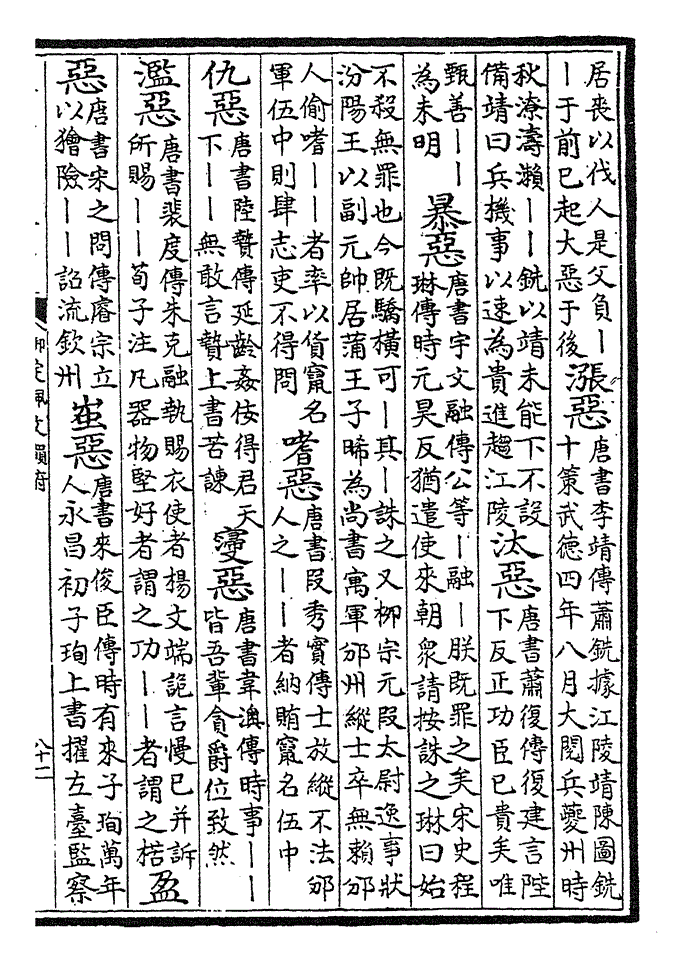 居喪以伐人是父負丨
丨于前已起大惡于後
漲惡
唐書李靖傳蕭銑據江陵靖陳圖銑
十策武德四年八月大閱兵夔州時
秋潦濤瀨丨丨銑以靖未能下不設
備靖曰兵機事以速為貴進趨江陵
汰惡
唐書蕭復傳復建言陛
下反正功臣已貴矣唯
甄善丨丨
為未明
暴惡
唐書宇文融傳公等丨融丨朕既罪之矣宋史程
琳傳時元昊反猶遣使來朝衆請按誅之琳曰始
不殺無罪也今既驕橫可丨其丨誅之又柳宗元段太尉逸事狀
汾陽王以副元帥居蒲王子晞為尚書寓軍邠州縱士卒無賴邠
人偷嗜丨丨者率以貨竄名
軍伍中則肆志吏不得問
嗜惡
唐書段秀實傳士放縱不法邠
人之丨丨者納賄竄名伍中
仇惡
唐書陸贄傳延齡姦佞得君天
下丨丨無敢言贄上書苦諫
寖惡
唐書韋澳傳時事丨丨
皆吾輩貪爵位致然
濫惡
唐書裴度傳朱克融執賜衣使者楊文端詭言慢已并訴
所賜丨丨荀子注凡器物堅好者謂之功丨丨者謂之楛
盈
惡
唐書宋之問傳睿宗立
以獪險丨丨詔流欽州
蚩惡
唐書來俊臣傳時有來子珣萬年
人永昌初子珣上書擢左臺監察
御定佩文韻府
八十二